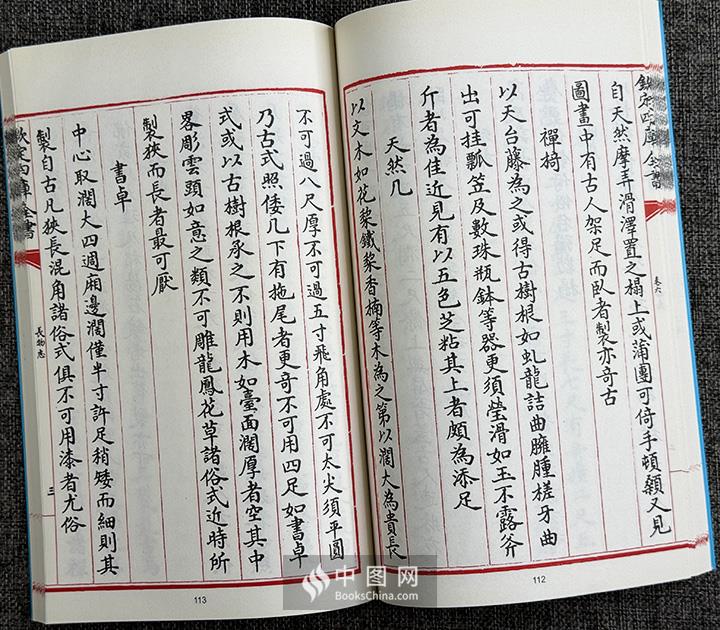 欽定四庫全書
卷六
自天然摩弄滑澤置之榻上或蒲團可倚手頓顙又見
圖畫中有古人架足而臥者製亦奇古
禪椅
以天台藤為之或得古樹根如虬龍詰曲臃腫槎牙曲
出可挂瓢笠及數珠瓶鉢等器更須瑩滑如玉不露斧
斤者為佳近見有以五色芝粘其上者頗為添足
天然几
以文木如花棃鐵棃香楠等木為之第以濶大為貴長
112
不可過八尺厚不可過五寸飛角處不可太尖須平圓
乃古式照倭几下有拖尾者更奇不可用四足如書卓
式或以古樹根承之不則用木如臺面濶厚者空其中
畧彫雲頭如意之類不可雕龍鳳花草諸俗式近時所
製狹而長者最可厭
書卓
中心取濶大四週廂邊濶僅半寸許足稍矮而細則其
製自古凡狹長混角諸俗式俱不可用漆者尤俗
欽定四庫全書
長物志
三
113
中图网
BooksChina.com